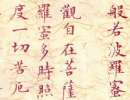 般若波羅蜜
觀自在菩薩
羅蜜多時照
度一切苦厄